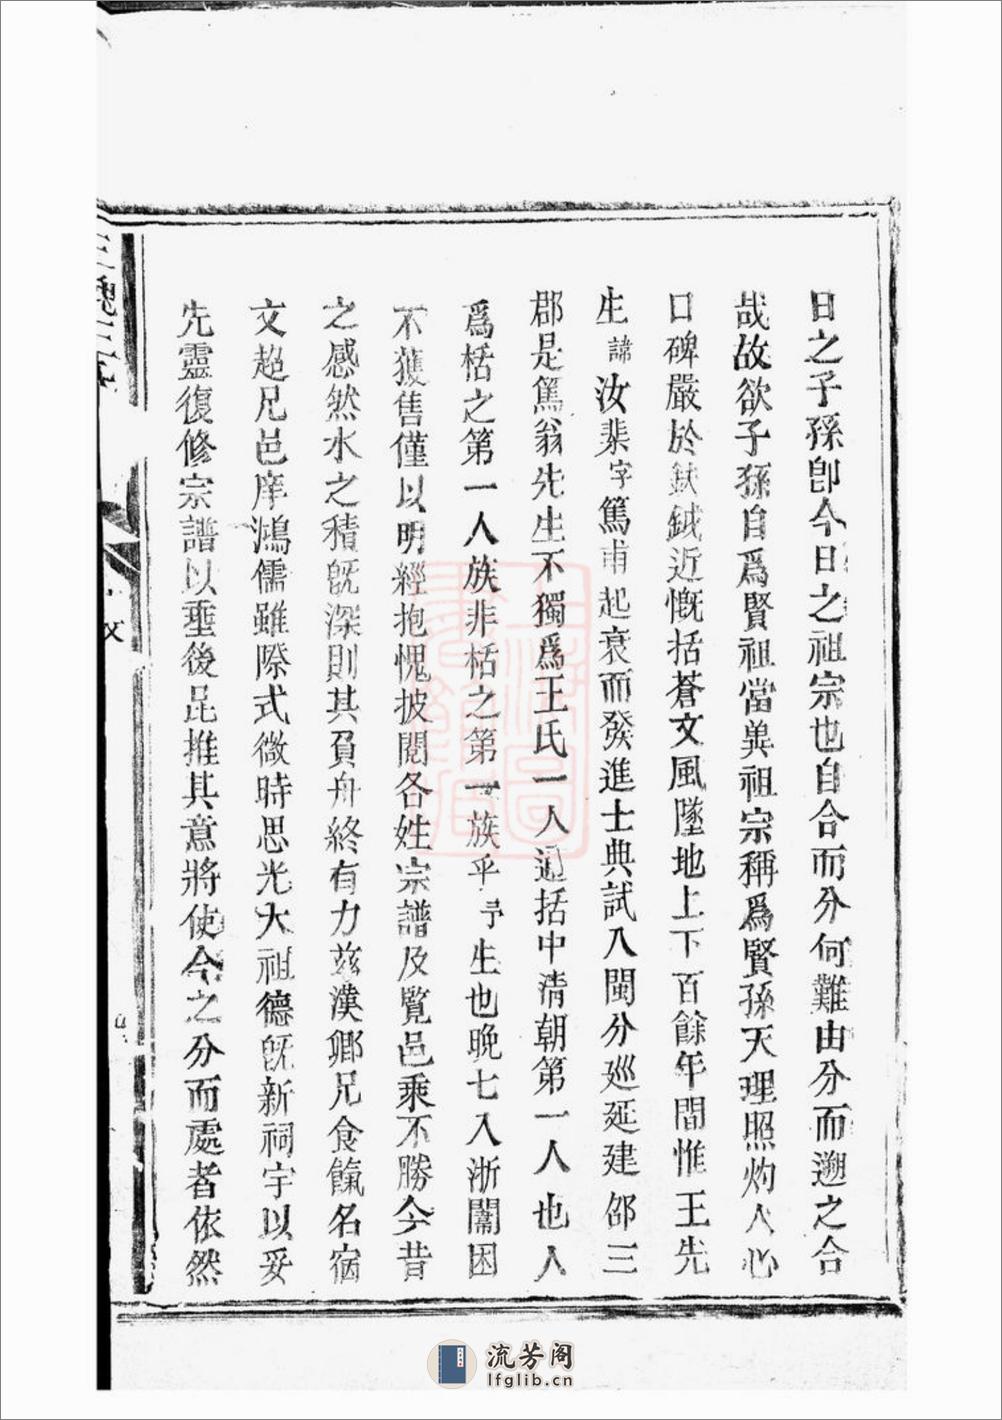 日之子孫卽今日之祖宗也自合而分何難由分而遡之合
哉故欲子孫自爲賢祖當異祖宗稱爲賢孫天理照灼人心
口碑嚴於鈇鉞近慨括蒼文風墜地上下百餘年間惟王先
生諱汝棐字篤甫起衰而發進士典試八閩分廵延建邵三
郡是篤翁先生不獨爲王氏一人迺括中清朝第一人也人
爲栝之第一人族非栝之第一族乎予生也晚七入浙闈困
不獲售僅以明經抱愧披閱各姓宗譜及覧邑乘不勝今昔
之感然水之積旣深則其負舟終有力兹漢卿兄食餼名宿
文超兄邑庠鴻儒雖際式微時思光大祖德旣新祠宇以妥
先靈復修宗譜以垂後昆推其意將使今之分而處者依然
三槐王氏
文
流芳阁
lfglib.cn